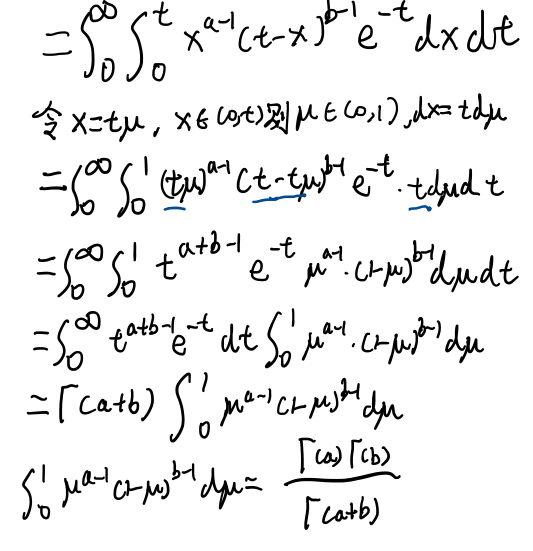 =∫₀^∞ ∫₀^t x^{a-1} (t-x)^{b-1} e^{-t} dx dt
令 x=tμ, x∈(0,t)则 μ∈(0,1), dx=tdμ
=∫₀^∞ ∫₀^1 (tμ)^{a-1} (t-tμ)^{b-1} e^{-t}·tdμdt
=∫₀^∞ ∫₀^1 t^{a+b-1} e^{-t} μ^{a-1}·(1-μ)^{b-1} dμdt
=∫₀^∞ t^{a+b-1} e^{-t} dt ∫₀^1 μ^{a-1}·(1-μ)^{b-1} dμ
=Γ(a+b) ∫₀^1 μ^{a-1} (1-μ)^{b-1} dμ
∫₀^1 μ^{a-1} (1-μ)^{b-1} dμ= Γ(a)Γ(b) / Γ(a+b)